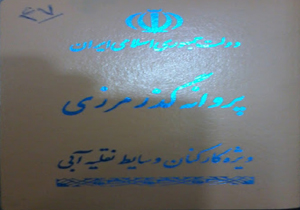 ۴۷
دولت جمهوری اسلامی ایران
پروانه گذر مرزی
ویژه کارکنان وسایط نقلیه آبی